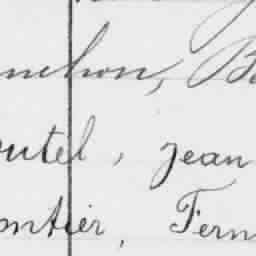 nchon, B
outel, jean
ontier, Fern